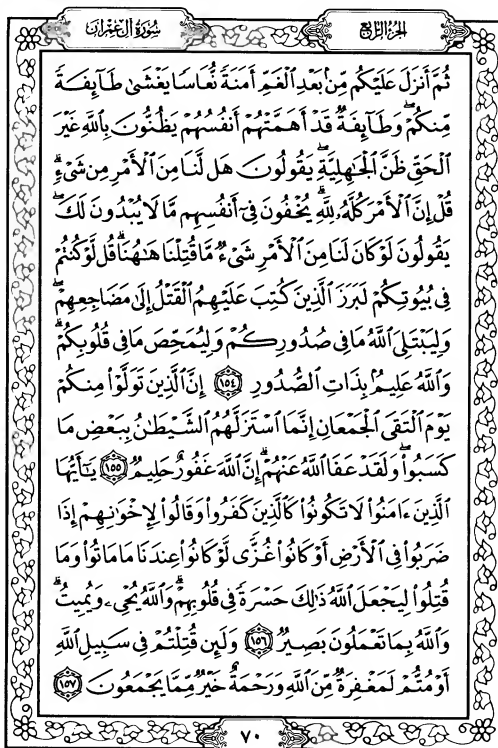 سُورَةُ آلِ عِمْرَان
الجُزءُ الرَّابِعُ
ثُمَّ أَنزَلَ عَلَيْكُم مِّنۢ بَعْدِ ٱلْغَمِّ أَمَنَةً نُّعَاسًا يَغْشَىٰ طَآئِفَةً
مِّنكُمْ ۖ وَطَآئِفَةٌ قَدْ أَهَمَّتْهُمْ أَنفُسُهُمْ يَظُنُّونَ بِٱللَّهِ غَيْرَ
ٱلْحَقِّ ظَنَّ ٱلْجَٰهِلِيَّةِ ۖ يَقُولُونَ هَل لَّنَا مِنَ ٱلْأَمْرِ مِن شَىْءٍ ۗ
قُلْ إِنَّ ٱلْأَمْرَ كُلَّهُۥ لِلَّهِ ۗ يُخْفُونَ فِىٓ أَنفُسِهِم مَّا لَا يُبْدُونَ لَكَ ۖ
يَقُولُونَ لَوْ كَانَ لَنَا مِنَ ٱلْأَمْرِ شَىْءٌ مَّا قُتِلْنَا هَٰهُنَا ۗ قُل لَّوْ كُنتُمْ
فِى بُيُوتِكُمْ لَبَرَزَ ٱلَّذِينَ كُتِبَ عَلَيْهِمُ ٱلْقَتْلُ إِلَىٰ مَضَاجِعِهِمْ ۖ
وَلِيَبْتَلِىَ ٱللَّهُ مَا فِى صُدُورِكُمْ وَلِيُمَحِّصَ مَا فِى قُلُوبِكُمْ ۗ
وَٱللَّهُ عَلِيمٌۢ بِذَاتِ ٱلصُّدُورِ ١٥٤ إِنَّ ٱلَّذِينَ تَوَلَّوْا۟ مِنكُمْ
يَوْمَ ٱلْتَقَى ٱلْجَمْعَانِ إِنَّمَا ٱسْتَزَلَّهُمُ ٱلشَّيْطَٰنُ بِبَعْضِ مَا
كَسَبُوا۟ ۖ وَلَقَدْ عَفَا ٱللَّهُ عَنْهُمْ ۗ إِنَّ ٱللَّهَ غَفُورٌ حَلِيمٌ ١٥٥ يَٰٓأَيُّهَا
ٱلَّذِينَ ءَامَنُوا۟ لَا تَكُونُوا۟ كَٱلَّذِينَ كَفَرُوا۟ وَقَالُوا۟ لِإِخْوَٰنِهِمْ إِذَا
ضَرَبُوا۟ فِى ٱلْأَرْضِ أَوْ كَانُوا۟ غُزًّى لَّوْ كَانُوا۟ عِندَنَا مَا مَاتُوا۟ وَمَا
قُتِلُوا۟ لِيَجْعَلَ ٱللَّهُ ذَٰلِكَ حَسْرَةً فِى قُلُوبِهِمْ ۗ وَٱللَّهُ يُحْىِۦ وَيُمِيتُ ۗ
وَٱللَّهُ بِمَا تَعْمَلُونَ بَصِيرٌ ١٥٦ وَلَئِن قُتِلْتُمْ فِى سَبِيلِ ٱللَّهِ
أَوْ مُتُّمْ لَمَغْفِرَةٌ مِّنَ ٱللَّهِ وَرَحْمَةٌ خَيْرٌ مِّمَّا يَجْمَعُونَ ١٥٧
٧٠